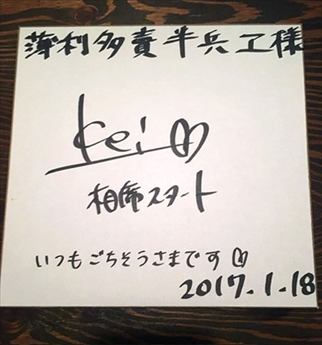 薄利多賣半兵ヱ様
Kei
相席スタート
いつもごちそうさまです
2017.1.18